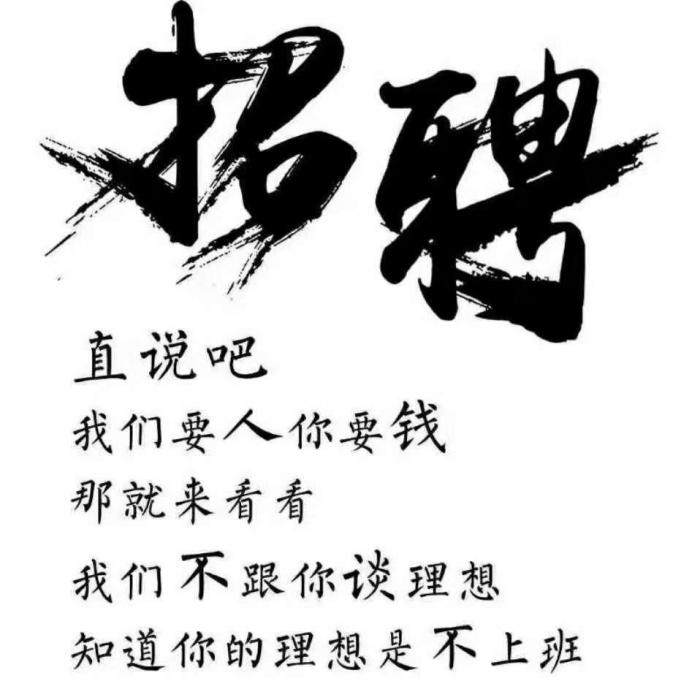 招聘
直说吧
我们要人你要钱
那就来看看
我们不跟你谈理想
知道你的理想是不上班